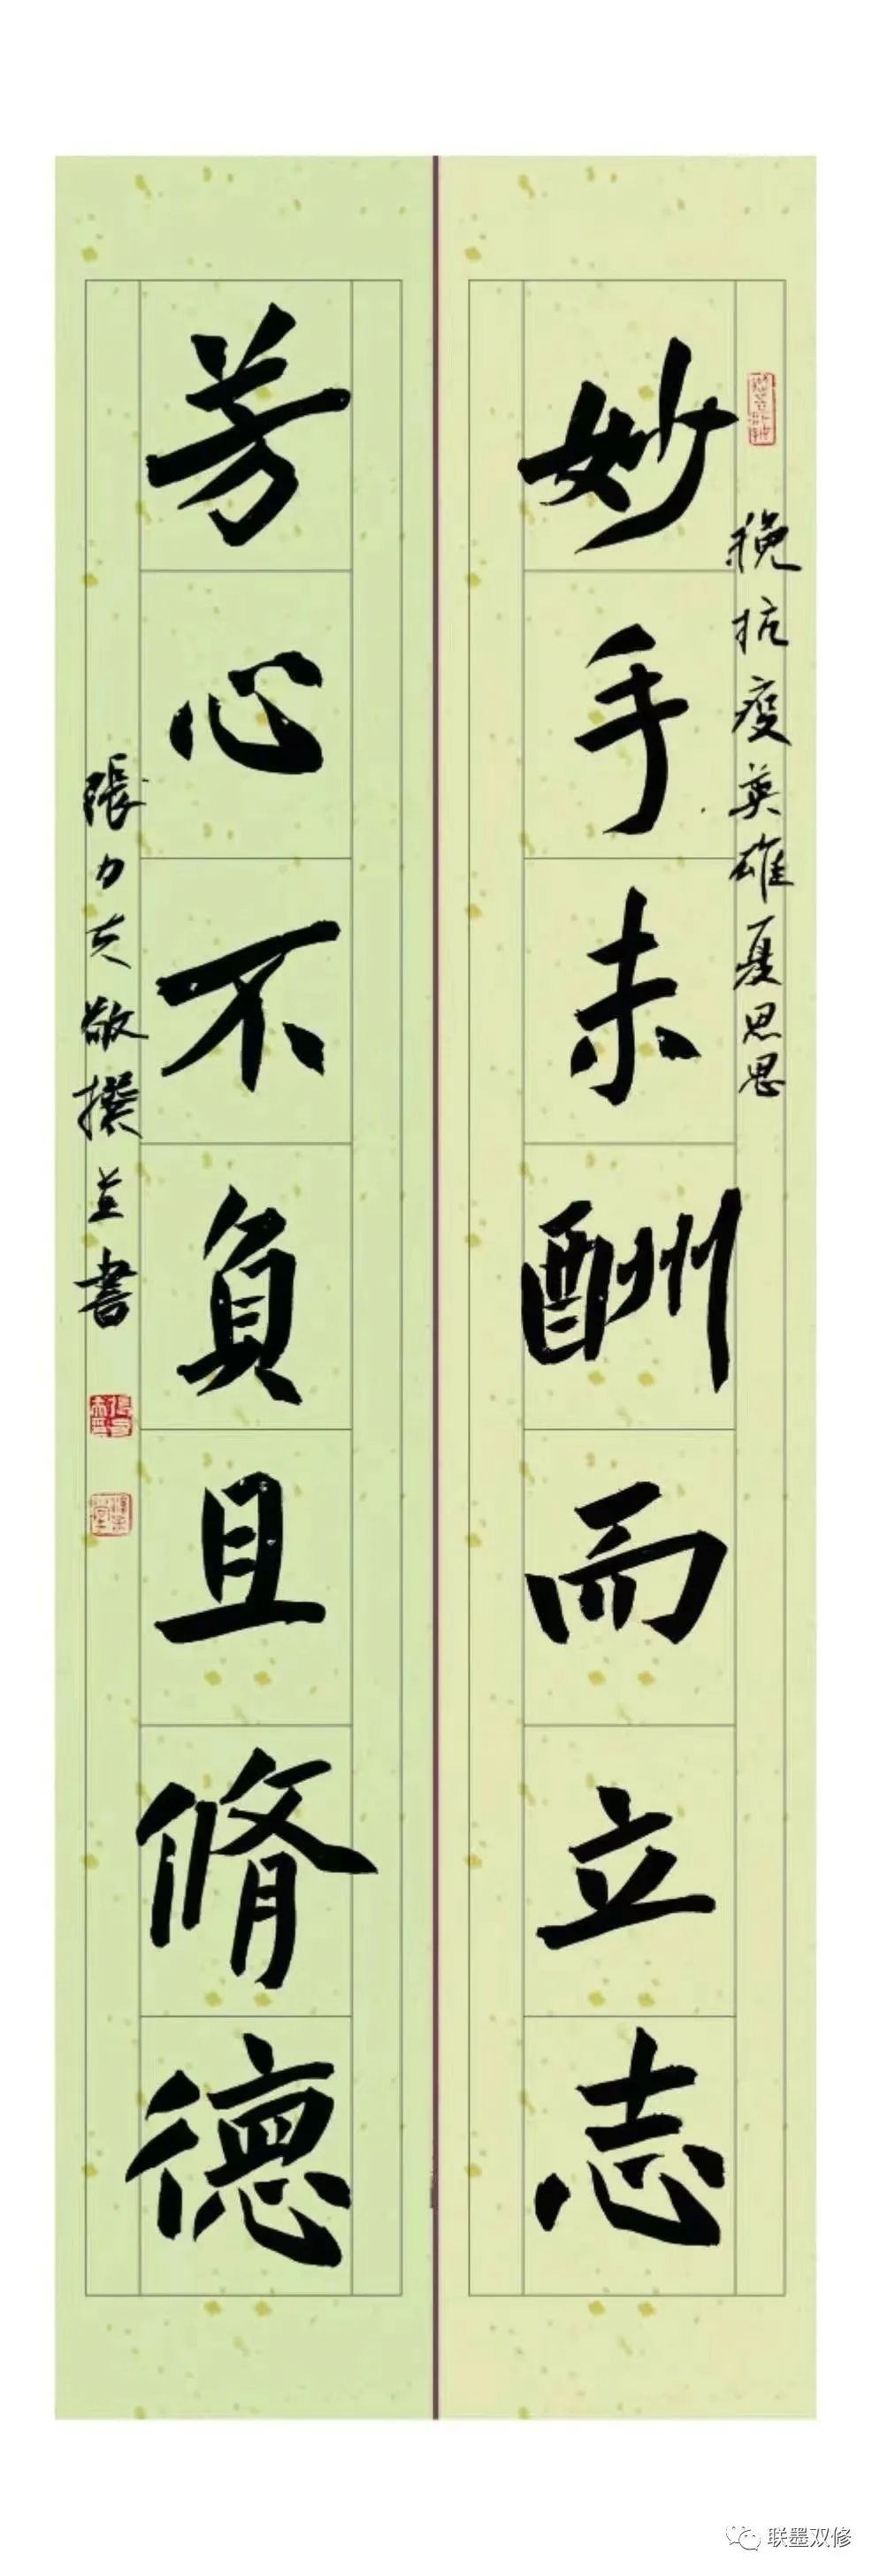 挽抗疫英雄夏思思
妙手未酬而立志
芳心不負且脩德
張力夫敬撰並書
联墨双修